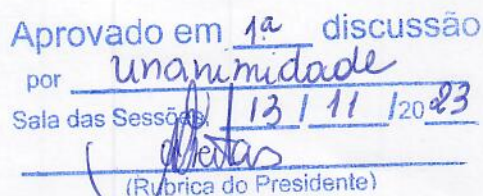 Aprovado em 1ª discussão
por unanimidade
Sala das Sessões, 13 / 11 /2023
(Rubrica do Presidente)